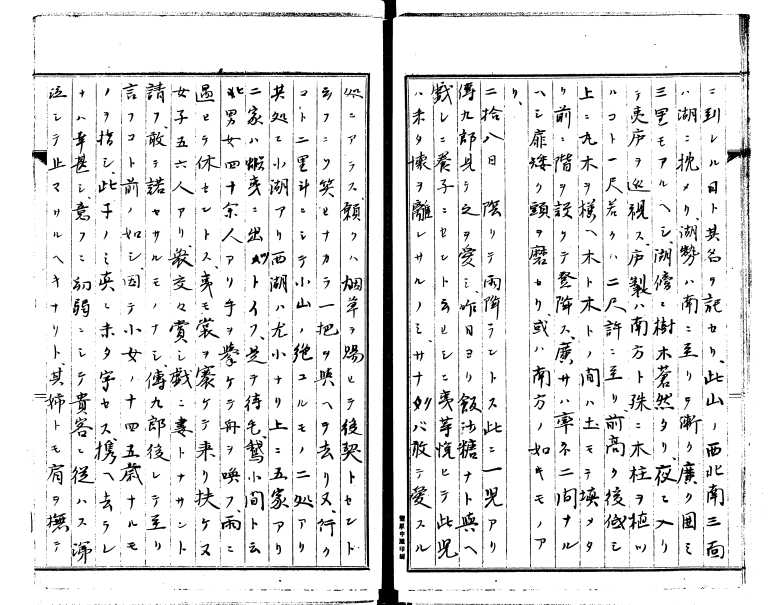 ニ到レル日ト其名ヲ記セリ、此山ノ西北南三面
ハ湖ニ枕メリ、湖勢ハ南ニ至リテ漸ク廣ク囲ミ
三里モアルヘシ、湖傍ニ樹木蒼然タリ、夜ニ入リ
テ夷庐ヲ巡視ス、庐製ハ南方ト殊ニ木柱ヲ植ツ
ルコト一尺若クハ二尺許ニ至リ前高ク後低シ
上ニ丸木ヲ様ヘ木ト木トノ間ハ土モテ填メタ
リ前ニ階ヲ設ケテ登降ス、廣サハ率ネ二間ナル
ヘシ扉矮ク頭ヲ磨セリ或ハ南方ノ如キモノア
リ、
二拾八日 陰リテ雨降ラントス此ニ一児アリ
傳九郎見テ之ヲ愛シ昨日ヨリ飯沙糖ナト與ヘ
戯レニ養子ニセント云ヒシニ夷等悦ヒテ此児
ハ未タ懐ヲ離レサルノミ、サナクハ敢テ愛スル
処ニアラス願クハ烟草ヲ賜ヒテ後契トセント
云フニソ笑ヒナカラ一把ヲ與ヘテ去リ又、行ク
コト二里斗ニシテ小山ノ絶ユルモノ二処アリ
其処ニ小湖アリ西湖ハ尤小ナリ上ニ五家アリ
二家ハ蝦夷ニ出タトイフ、芝テ待乇、鵞小間ト云
此男女四十余人アリ手ヲ挙ケテ舟ヲ喚フ、雨ニ
遇ヒテ休セントス、夷モ裳ヲ褰ケテ乗リ扶ケヌ
女子五六人アリ、最交々賞シ戯ニ妻トナサント
請フ、敢テ諾セサルモノナシ傳九郎後レテ至リ
言フコト前ノ如シ、因テ小女ノ十四五歳ナルモ
ノヲ指シ、此子ノミ真ニ未タ字セス携ヘ去ラレ
ナハ幸甚シ、意フニ幼弱ニシテ貴客ニ従ハス涕
泣シテ止マサルヘキナリト、其姉トモ肩ヲ撫テ